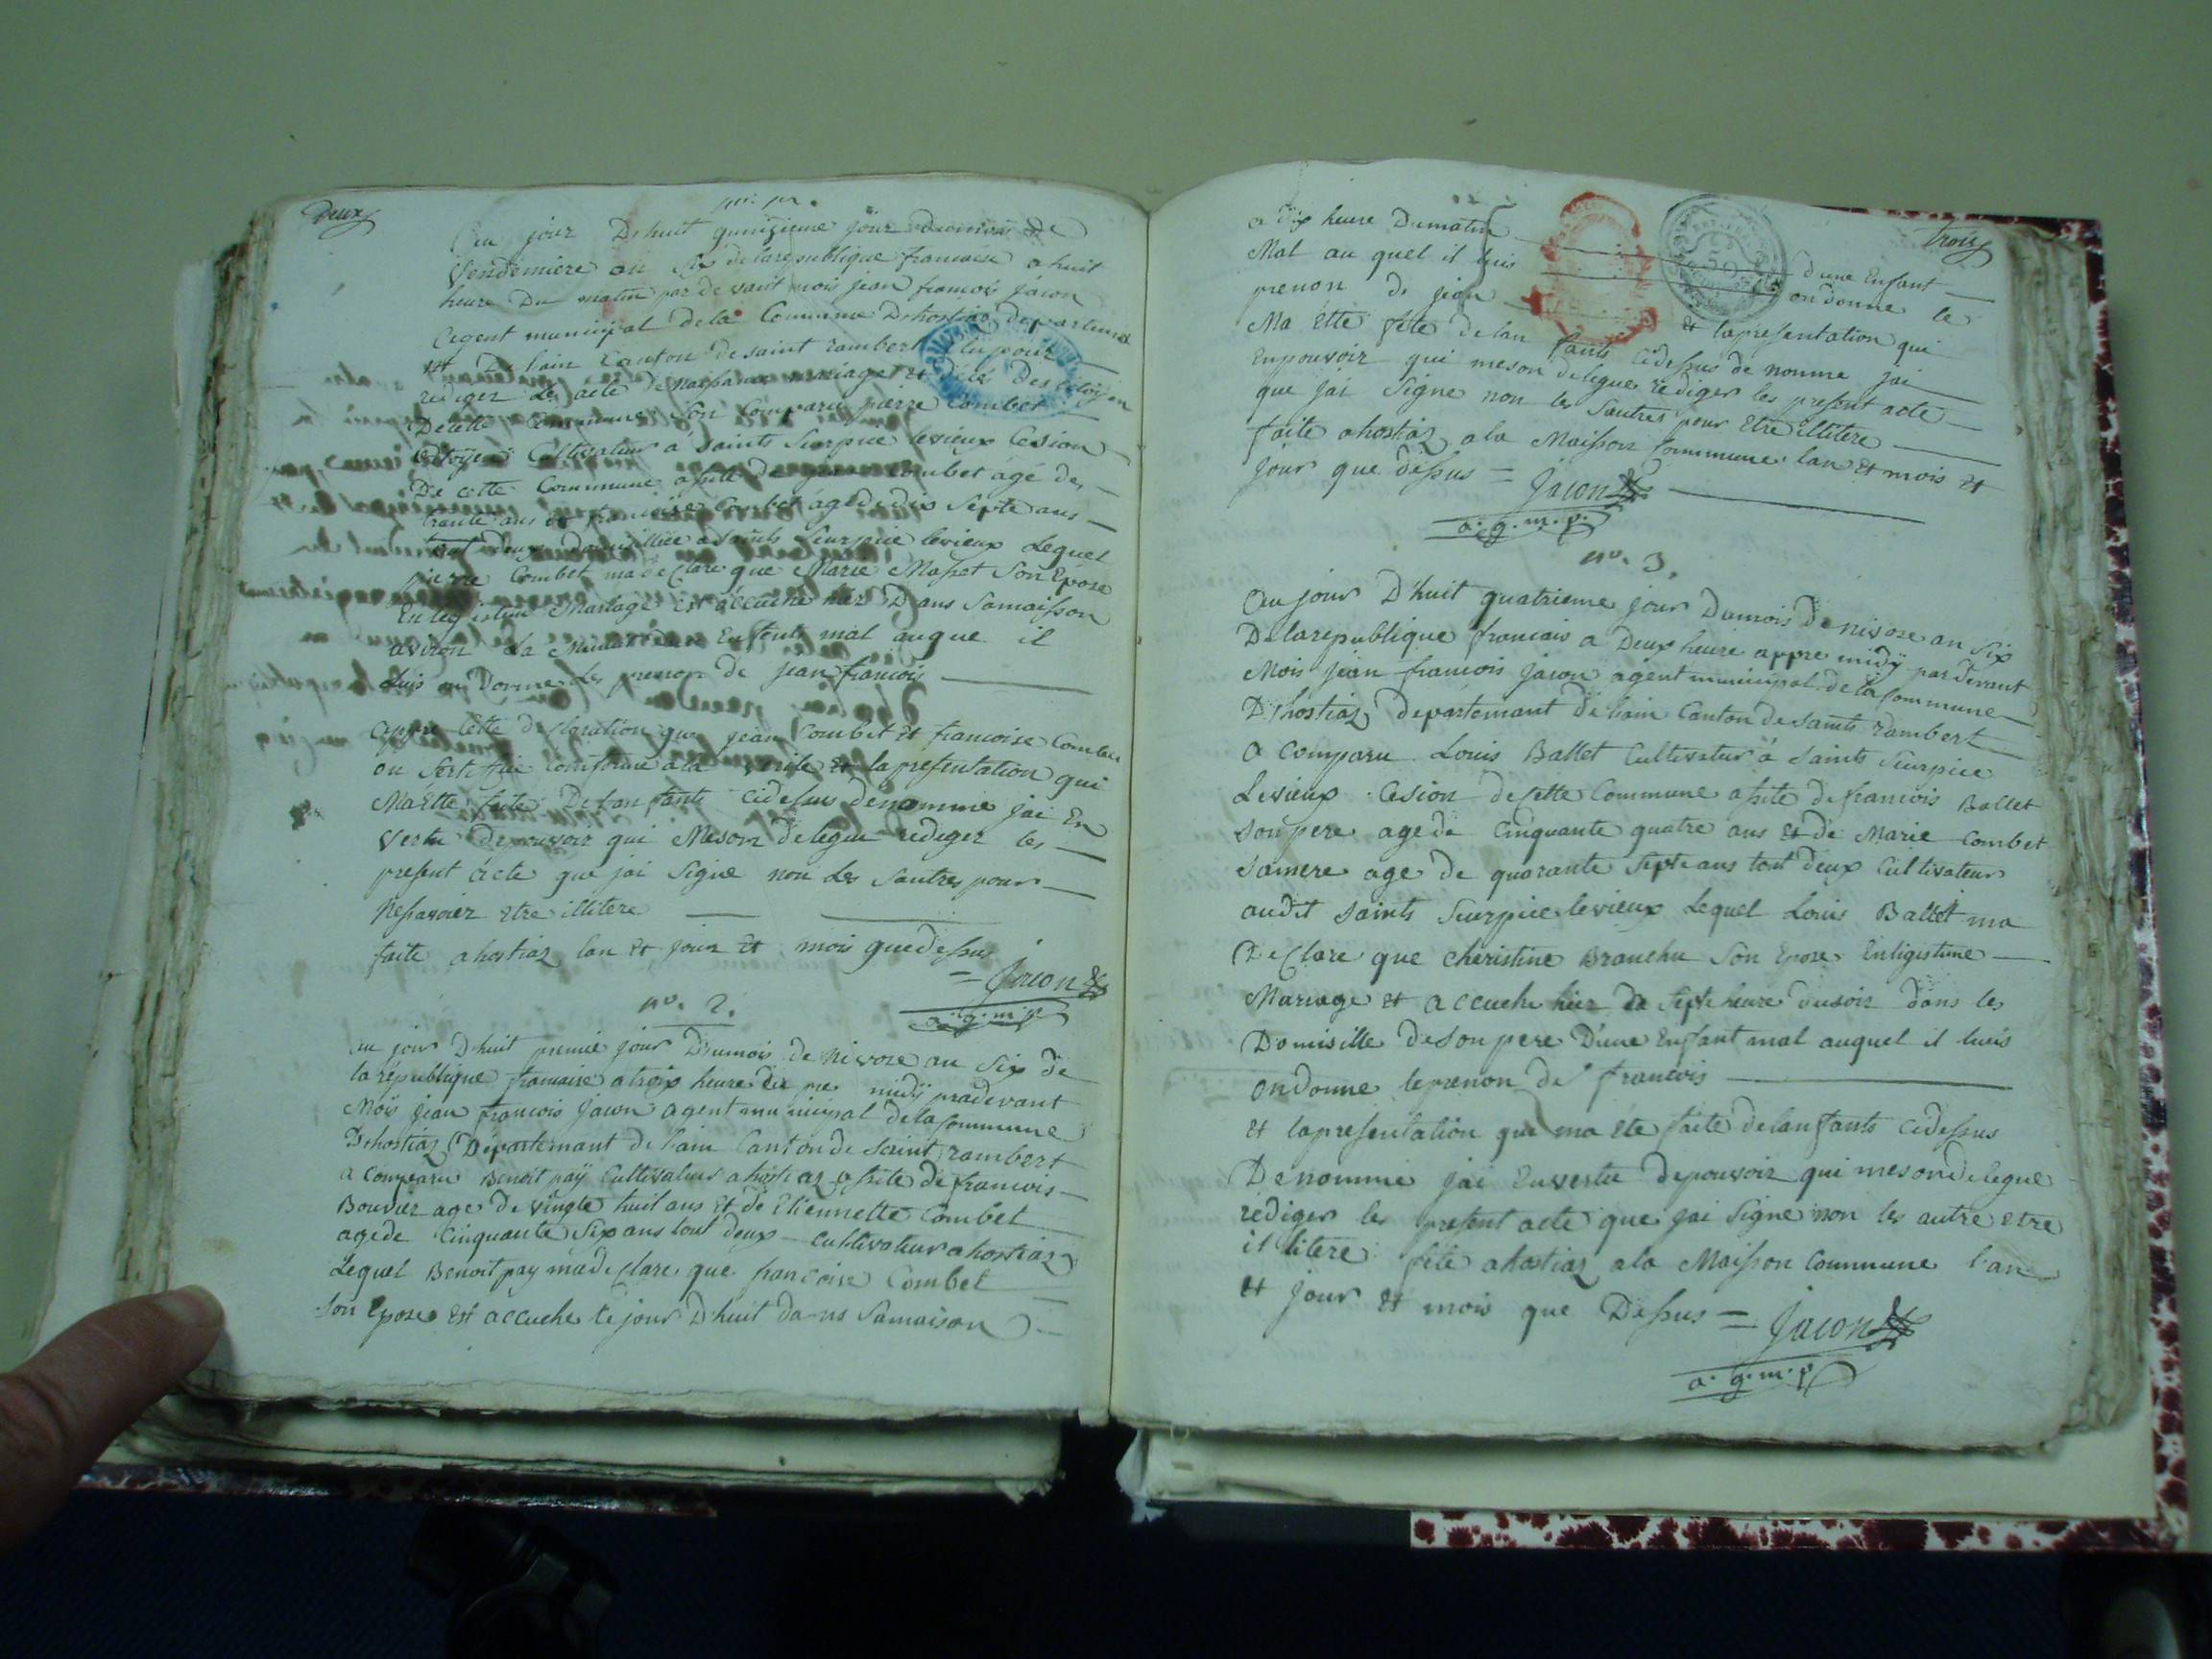 Deux
nº. 1er.
Au jour Dhuit quinzieme jour Dumois de
Vendemiere an Six de la republique francaise a huit
heure Du matin par devant mois jean francois jacon
Agent municipal dela Commune Dhostiaz departema
nt De lain Canton de saint rambert elu pour
rediger les acte de naissance mariages et deces des citoyen
De cette Commune Son Comparu pierre Combet
Citoyen Cultivateur a saints Surpice levieux Cesion
De cette Commune asite de jean Combet agé de
trante ans et francoise Combet agé de dix Septe ans
tout deux domicillie a saints Surpice levieux Lequel
pierre Combet ma declare que Marie Massat Son Epose
En legistime Mariage est accuche hier Dans Samaisson
aviron La Minuit dun Enfents mal auque il
Luis on Donne Les prenon de jean francois
appre Cette Declaration que jean Combet et francoise Combet
on Sertiffie Comforme ala verite et la presentation qui
Ma Ette faite De lan fants cidessus denomme jai En
Vertu depouvoir qui Meson delegue rediger les
present acte que jai Signe non Les Sautres pour
Nessavoier etre illitere
faite a hostiaz lan et jour et mois que dessus
= Jacon
a. g. m. p.
nº. 2.
Au jour Dhuit premie jour Dumois de nivoze an Six de
la republique francaise a troix heure de pre midÿ pradevant
Mois jean francois jacon agent municipal dela Commune
Dhostiaz Departemant de lain Canton de saint rambert
a Comparu Benoit paÿ Cultivateur a hostiaz asite de francois
Bouvier age De vingte huit ans et de Etiennette Combet
age de Cinquante Six ans tout deux cultivateur a hostiaz
Lequel Benoit pay ma declare que francoise Combet
Son Epose est accuche le jour Dhuit dans Samaison
trois
a dix heure Dumatin d'une Enfant
Mal au quel il luis on donne le
prenon de jean et lapresentation qui
Ma Ette fete de lan fants Cidessus de nomme jai
Enpouvoir qui meson delegue rediger les present acte
que jai Signe non les Sautres pour etre illitere
faite a hostiaz a la Maisson Commune lan et mois et
jour que dessus = Jacon
a. g. m. p.
nº. 3.
Au jour D'huit quatrieme jour Dumois de nivoze an Six
De larepublique francais a Deux heure appre midÿ par devant
Mois jean francois jacon agent municipal de la Commune
Dhostiaz departemant de lain Canton de Saints rambert
a Comparu Louis Ballet Cultivatur a Saints Surpice
Levieux Cesion de Cette Commune asite de francois Ballet
Son pere age de Cinquante quatre ans et de Marie Combet
Samere age de quarante Septe ans tout deux Cultivateur
audit Saints Surpice levieux Lequel Louis Ballet ma
Declare que cheristine Branche Son Epose Enligistime
Mariage et accuche hier a Septe heure dusoir dans les
Domisille deson pere D'une Enfant mal auquel il luis
on donne leprenon de francois
et lapresentation qui ma ete faite delan fants Cidessus
De nomme jai En vertu depouvoir qui mesondelegue
rediger les present acte que jai Signe non les autre etre
illitere fete a hostiaz a la Maisson Commune l'an
et jour et mois que Dessus = Jacon
a. g. m. p.